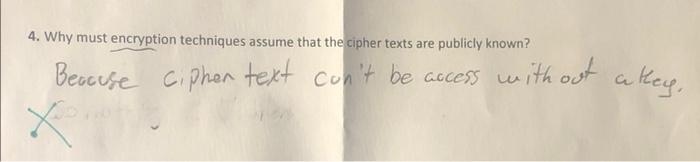 4. Why must encryption techniques assume that the cipher texts are publicly known?
Because cipher text can't be access without a key.